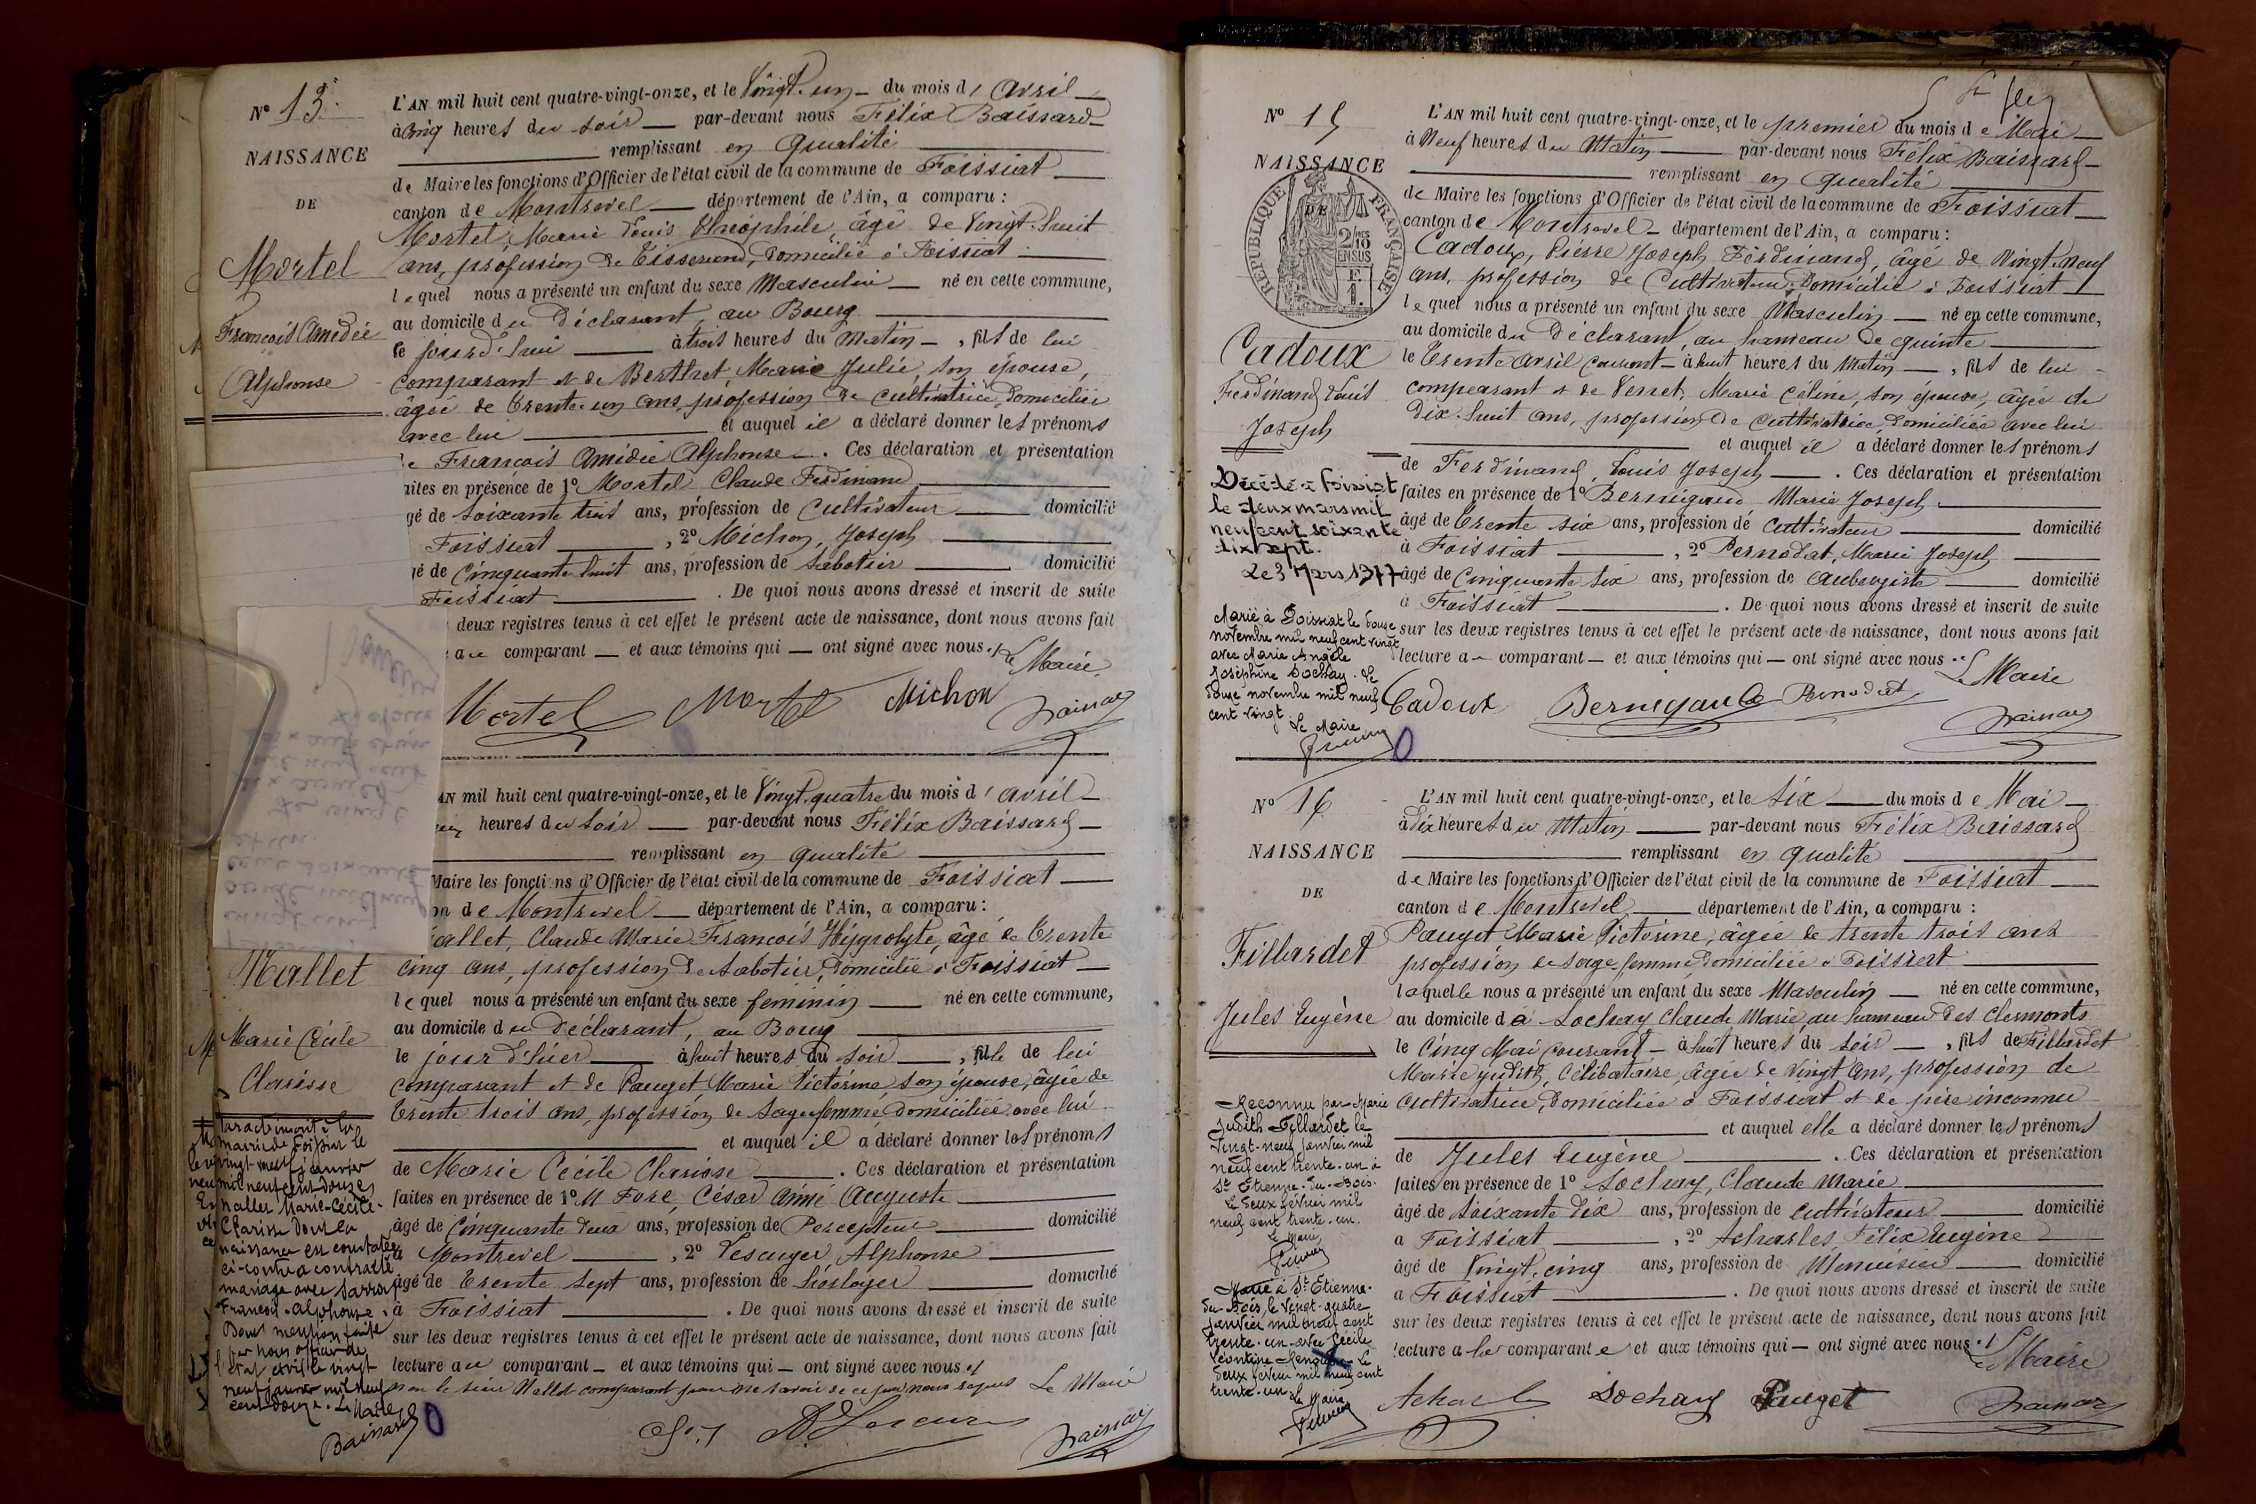 N° 13.
NAISSANCE
DE
Mortel
François Amédée
Alphonse
L'AN mil huit cent quatre-vingt-onze, et le Vingt-un du mois d' avril
à cinq heures du soir par-devant nous Félix Baissard
remplissant en qualité
de Maire les fonctions d'Officier de l'état civil de la commune de Foissiat
canton de Montrevel département de l'Ain, a comparu :
Mortel, Marie Louis Théophile âgé de Vingt-huit
ans, profession de Tisserand, domicilié à Foissiat
lequel nous a présenté un enfant du sexe Masculin né en cette commune,
au domicile du Déclarant, au Bourg
le jourd'hui à trois heures du Matin, fils de lui
comparant et de Berthet, Marie Julie, son épouse,
âgée de trente-un ans, profession de cultivatrice, domiciliée
avec lui et auquel il a déclaré donner les prénoms
de François Amédée Alphonse. Ces déclaration et présentation
aites en présence de 1° Mortel Claude Ferdinand
gé de soixante trois ans, profession de Cultivateur domicilié
Foissiat, 2° Michon, Joseph
gé de Cinquante huit ans, profession de Sabotier domicilié
Foissiat. De quoi nous avons dressé et inscrit de suite
deux registres tenus à cet effet le présent acte de naissance, dont nous avons fait
au comparant et aux témoins qui ont signé avec nous. Le Maire
Mortel Mortel Michon Baissard
Mallet
Marie Cécile
Clarisse
AN mil huit cent quatre-vingt-onze, et le Vingt-quatre du mois d' avril
heures du soir par-devant nous Félix Baissard
remplissant en qualité
Maire les fonctions d'Officier de l'état civil de la commune de Foissiat
on de Montrevel département de l'Ain, a comparu :
allet, Claude Marie François Hippolyte, âgé de trente
cinq ans, profession de Sabotier, domicilié à Foissiat
lequel nous a présenté un enfant du sexe féminin né en cette commune,
au domicile du Déclarant, au Bourg
le jour d'hier à huit heures du soir, fille de lui
comparant et de Pauget, Marie Victorine, son épouse, âgée de
trente trois ans, profession de Sage-femme, domiciliée avec lui
et auquel il a déclaré donner les prénoms
de Marie Cécile Clarisse. Ces déclaration et présentation
faites en présence de 1° M Fore, César Aimé Auguste
âgé de Cinquante deux ans, profession de Percepteur domicilié
à Montrevel, 2° Lescuyer, Alphonse
âgé de trente sept ans, profession de horloger domicilié
à Foissiat. De quoi nous avons dressé et inscrit de suite
sur les deux registres tenus à cet effet le présent acte de naissance, dont nous avons fait
lecture au comparant et aux témoins qui ont signé avec nous
Le Maire
Baissard
mairie de Foissiat le
vingt-neuf janvier
mil neuf cent douze
Mallet Marie-Cécile-
Clarisse dont la
naissance est constatée
ci-contre a contracté
mariage avec
François-Alphonse.
Dont mention faite
par nous officier de
l'état civil le vingt
neuf janvier mil neuf
cent douze. Le Maire
Baissard
N° 15
NAISSANCE
DE
RÉPUBLIQUE FRANÇAISE
2/10
EN SUS
Cadoux
Ferdinand Louis
Joseph
Décédé à Foissiat
le deux mars mil
neuf cent soixante
dix sept.
Le 3 Mars 1977
Marié à Foissiat le douze
novembre mil neuf cent vingt
avec Marie Angèle
Joséphine Sochay. Le
douze novembre mil neuf
cent vingt
Le Maire
L'AN mil huit cent quatre-vingt-onze, et le premier du mois de Mai
à Neuf heures du Matin par-devant nous Félix Baissard
remplissant en qualité
de Maire les fonctions d'Officier de l'état civil de la commune de Foissiat
canton de Montrevel département de l'Ain, a comparu :
Cadoux, Pierre Joseph Ferdinand, âgé de Vingt-neuf
ans, profession de Cultivateur, domicilié à Foissiat
lequel nous a présenté un enfant du sexe Masculin né en cette commune,
au domicile du Déclarant, au hameau de quinte
le trente avril courant à huit heures du Matin, fils de lui
comparant et de Verret, Marie Céline, son épouse, âgée de
dix-huit ans, profession de cultivatrice, domiciliée avec lui
et auquel il a déclaré donner les prénoms
de Ferdinand Louis Joseph. Ces déclaration et présentation
faites en présence de 1° Bernigaud Marie Joseph
âgé de trente six ans, profession de Cultivateur domicilié
à Foissiat, 2° Pernodat, Marie Joseph
âgé de Cinquante six ans, profession de aubergiste domicilié
à Foissiat. De quoi nous avons dressé et inscrit de suite
sur les deux registres tenus à cet effet le présent acte de naissance, dont nous avons fait
lecture au comparant et aux témoins qui ont signé avec nous. Le Maire
Cadoux Bernigaud Pernodat Baissard
N° 16
NAISSANCE
DE
Fillardet
Jules Eugène
Reconnu par Marie
Judith Fillardet le
vingt-neuf janvier mil
neuf cent trente-un à
St Etienne-du-Bois.
Le deux février mil
neuf cent trente-un.
Le Maire
Marié à St Etienne-
du-Bois, le vingt-quatre
janvier mil neuf cent
trente-un avec Cécile
Léontine Le
deux février mil neuf cent
trente-un Le Maire
L'AN mil huit cent quatre-vingt-onze, et le six du mois de Mai
à dix heures du Matin par-devant nous Félix Baissard
remplissant en qualité
de Maire les fonctions d'Officier de l'état civil de la commune de Foissiat
canton de Montrevel département de l'Ain, a comparu :
Pauget Marie Victorine, âgée de trente trois ans
profession de sage femme, domiciliée à Foissiat
laquelle nous a présenté un enfant du sexe Masculin né en cette commune,
au domicile de Sochay Claude Marie, au hameau des Clermonts
le Cinq Mai courant à huit heures du soir, fils de Fillardet
Marie Judith, Célibataire, âgée de Vingt ans, profession de
Cultivatrice, domiciliée à Foissiat et de père inconnu
et auquel elle a déclaré donner les prénoms
de Jules Eugène. Ces déclaration et présentation
faites en présence de 1° Sochay, Claude Marie
âgé de soixante dix ans, profession de cultivateur domicilié
à Foissiat, 2° Acharles Félix Eugène
âgé de Vingt-cinq ans, profession de Menuisier domicilié
à Foissiat. De quoi nous avons dressé et inscrit de suite
sur les deux registres tenus à cet effet le présent acte de naissance, dont nous avons fait
lecture a la comparante et aux témoins qui ont signé avec nous. Le Maire
Sochay Pauget Baissard